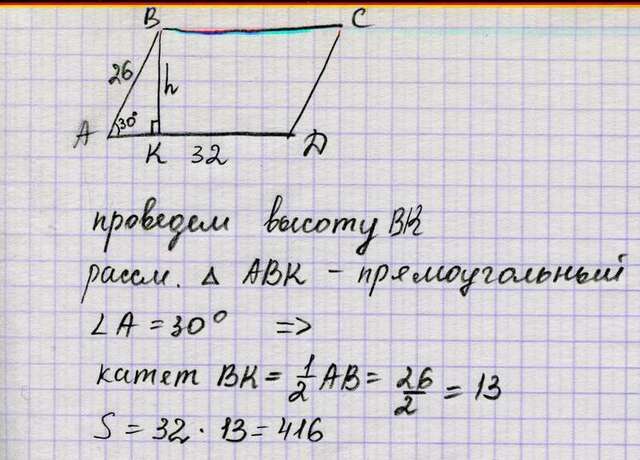 B C
26 h
A 30° K 32 D
проведем высоту BK
рассм. Δ ABK – прямоугольный
∠A = 30° =>
катет BK = 1/2 AB = 26/2 = 13
S = 32 · 13 = 416